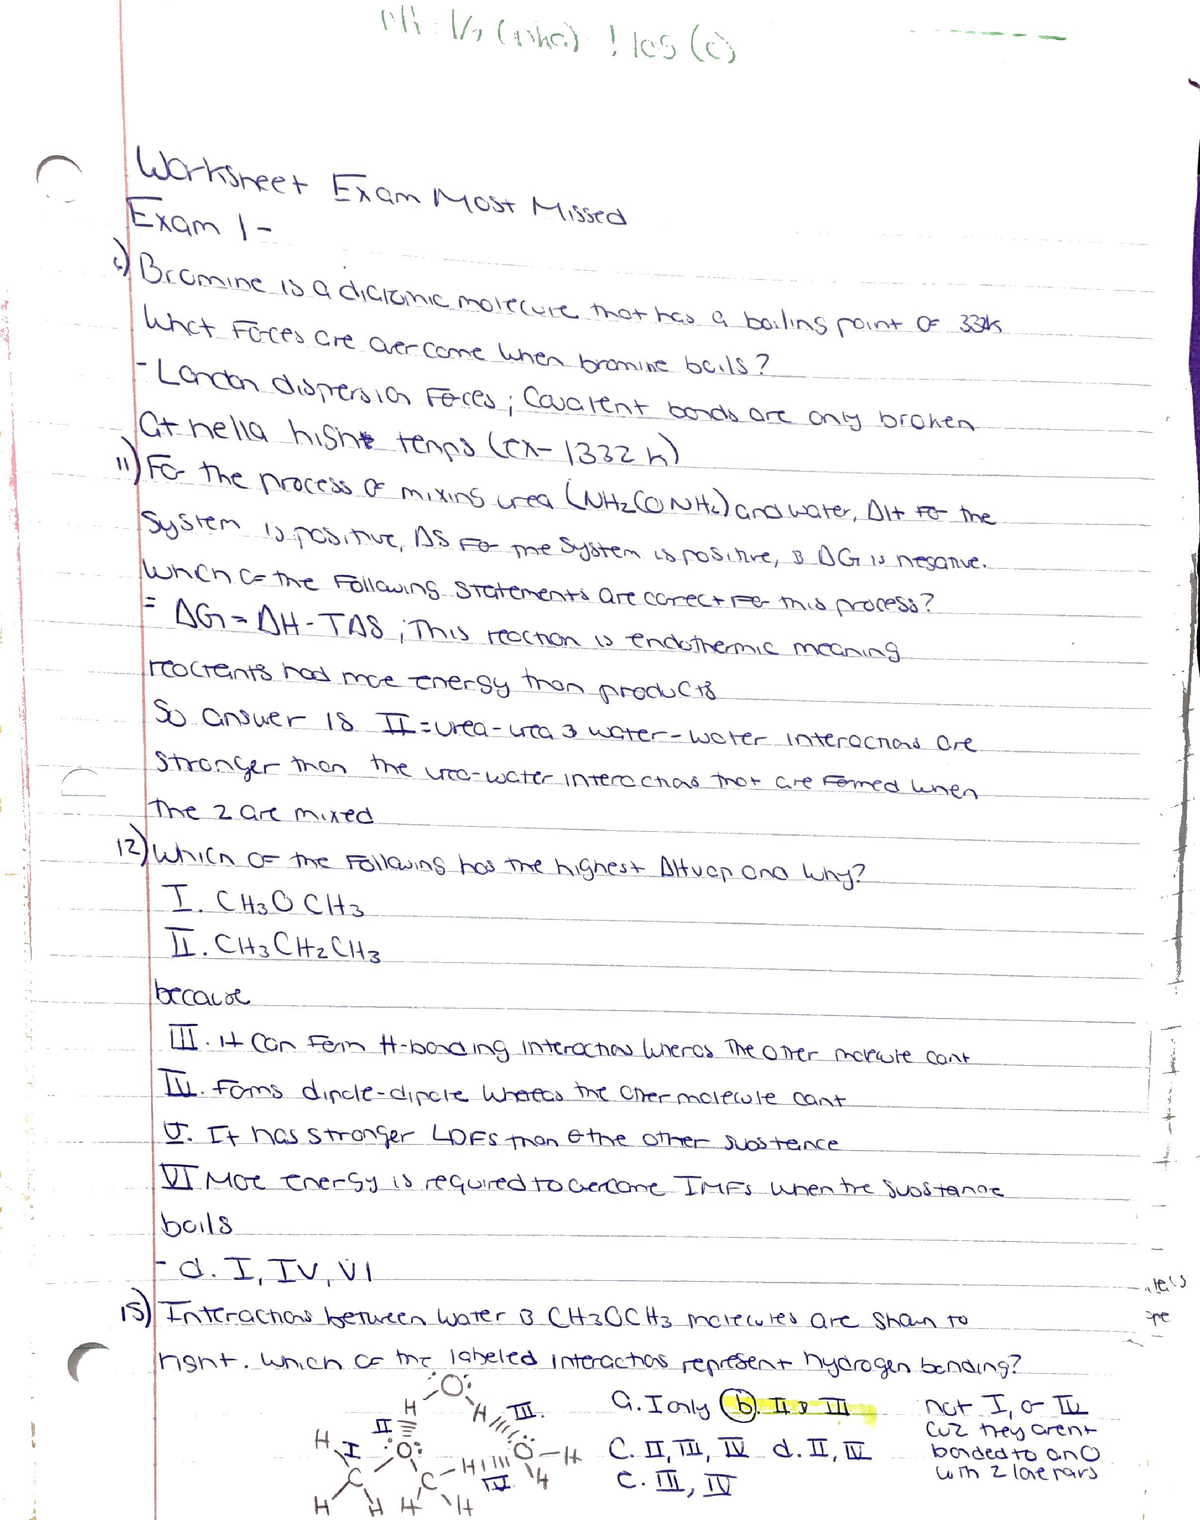 Worksheet Exam Most Missed
Exam 1 -
Bromine is a diatomic molecule that has a boiling point of 332k
What forces are overcome when bromine boils?
- London dispersion forces; Covalent bonds are only broken
at hella high temps (ex- 1332 k)
11) For the process of mixing urea (NH2CONH2) and water, ΔH for the
System is positive, ΔS for the System is positive, & ΔG is negative.
Which of the following statements are correct for this process?
= ΔG = ΔH - TΔS ; This reaction is endothermic meaning
reactants had more energy than products
So answer is II = urea-urea & water-water interactions are
Stronger than the urea-water interactions that are formed when
the 2 are mixed
12) Which of the following has the highest ΔHvap and why?
I. CH3OCH3
II. CH3CH2CH3
because
III. it can form H-bonding interactions wheras the other molecule cant
IV. forms dipole-dipole whereas the other molecule cant
V. It has stronger LDFs than the other substance
VI More energy is required to overcome IMFs when the substance
boils
- d. I, IV, VI
15) Interactions between water & CH3OCH3 molecules are shown to
right. Which of the labeled interactions represent hydrogen bonding?
a. I only b. II & III
C. II, III, IV d. II, IV
e. III, IV
not I, or IV
cuz they arent
bonded to an O
with 2 lone pairs
O
H H III.
II
H I O O-H
C C-H IV. H
H H H H